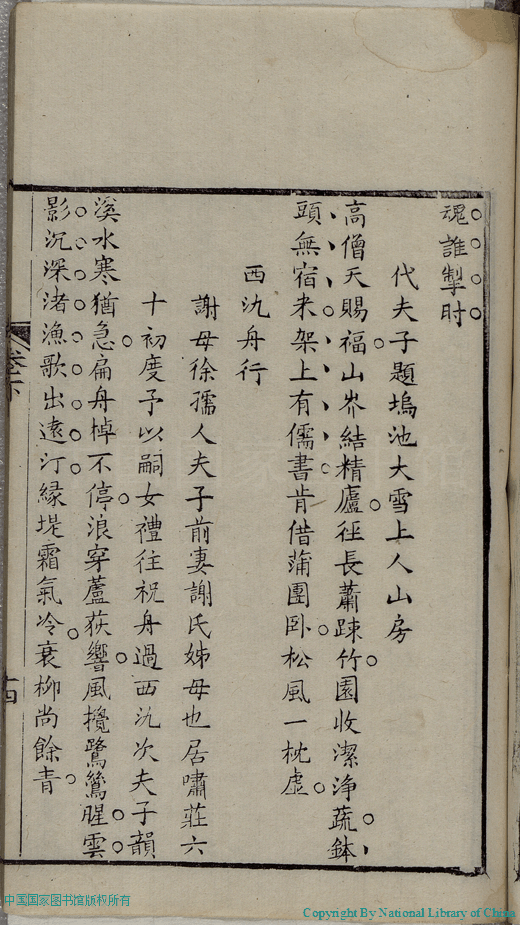 魂誰掣肘
代夫子題塢池大雪上人山房
高僧天賜福山岕結精廬徑長蕭踈竹園收潔淨蔬鉢
頭無宿米架上有儒書肯借蒲團臥松風一枕虛
西氿舟行
謝母徐孺人夫子前妻謝氏姊母也居嘯莊六
十初度予以嗣女禮往祝舟過西氿次夫子韻
溪水寒猶急扁舟棹不停浪穿蘆荻響風攪鷺鷥腥雲
影沉深渚漁歌出遠汀緣堤霜氣冷衰柳尚餘青
卷下
十四
中国国家图书馆版权所有
Copyright By National Library of China